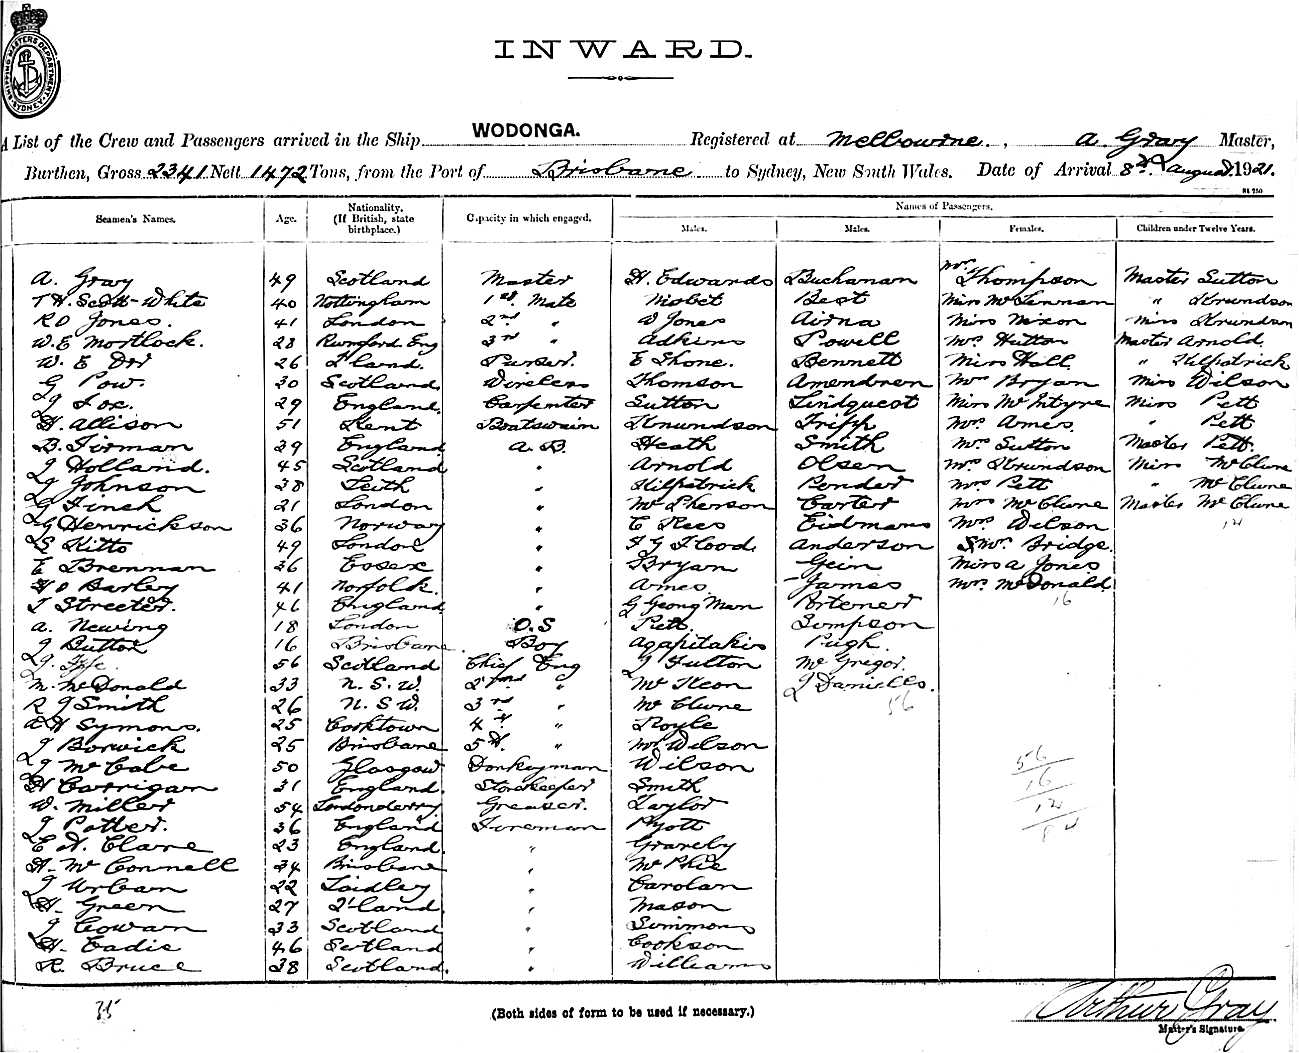 SHIPPING MASTERS DEPARTMENT SYDNEY
INWARD.
A List of the Crew and Passengers arrived in the Ship WODONGA. Registered at Melbourne, A Gray Master,
Burthen, Gross 2341 Nett 1472 Tons, from the Port of Brisbane to Sydney, New South Wales. Date of Arrival 8th August 1921.
Seamen's Names. Age. Nationality. (If British, state birthplace.) Capacity in which engaged. Names of Passengers.
Males. Males. Females. Children under Twelve Years.
A. Gray 49 Scotland Master H. Edwards Buchanan Mrs Thompson Master Sutton
T H. Scott-White 40 Nottingham 1st Mate Nisbet Best Miss McLennan " Knundson
R O Jones. 41 London 2nd " W Jones Airna Miss Nixon Miss Knundson
W. E Mortlock. 28 Rumford Eng 3rd " Adkins Powell Mrs Hutton Master Arnold
W. E 26 Q'land. Purser. E Shone. Bennett Miss Hall " Kilpatrick
G Pow. 30 Scotland Wireless Thomson Amendren Mrs Bryan Miss Wilson
J Fox. 29 England. Carpenter Sutton Lindqueot Miss McIntyre Miss Pett
H. Allison 51 Kent Boatswain Knundson Tripp Mrs Ames. " Pett
B. Firman 39 England A. B. Heath Smith Mrs Sutton Master Pett
J Holland. 45 Scotland " Arnold Olsen Mrs Knundson Miss McClune
J Johnson 38 Leith " Kilpatrick Ponder Mrs Pett " McClune
G Finch 21 London " McPherson Carter Mrs McClune Master McClune
G Henrickson 36 Norway " C Rees Eidmans Mrs Wilson 12
S Kitto 49 London " F G Flood. Anderson Mrs Bridge.
E Brennan 36 Essex " Bryan Gein Miss A Jones
H O Barley 41 Norfolk. " Ames James Mrs McDonald
J Streeter. 46 England " G Georg Man Portener 16
A. Newing 18 London O.S Pett. Simpson
J Button 16 Brisbane. Boy Agapitakis Pugh.
J. Fyfe. 56 Scotland Chief Eng J Fulton McGregor.
M. McDonald 33 N. S. W. 2nd " McKeon J Daniells.
R J Smith 26 N. S W. 3rd " McClune 56
A H Symons. 25 Cooktown 4th " Royle
J Borwick 25 Brisbane 5th " Wilson 56
J McCabe 50 Glasgow Donkeyman Wilson 16
H Corrigan 31 England. Storekeeper Smith 12
W. Miller 54 Londonderry Greaser. Taylor 84
J Potter. 36 England Foreman Pyott
E H. Clare 23 England. " Gravely
H. McConnell 34 Brisbane " McPhie
J Urban 22 Laidley " Carolan
H. Green 27 Q'land. " Mason
J Cowan 33 Scotland " Simmons
H. Eadie 46 Scotland " Cookson
R. Bruce 38 Scotland. " Williams
35
(Both sides of form to be used if necessary.)
Arthur Gray
Master's Signature.